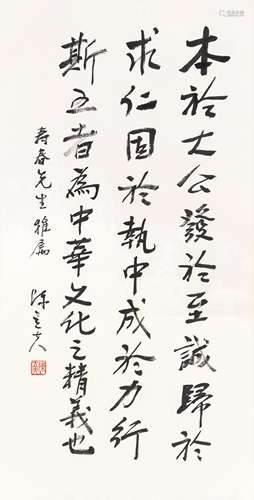 本於大公發於至誠歸於
求仁固於執中成於力行
斯五者為中華文化之精義也
壽春先生雅屬
陳立夫